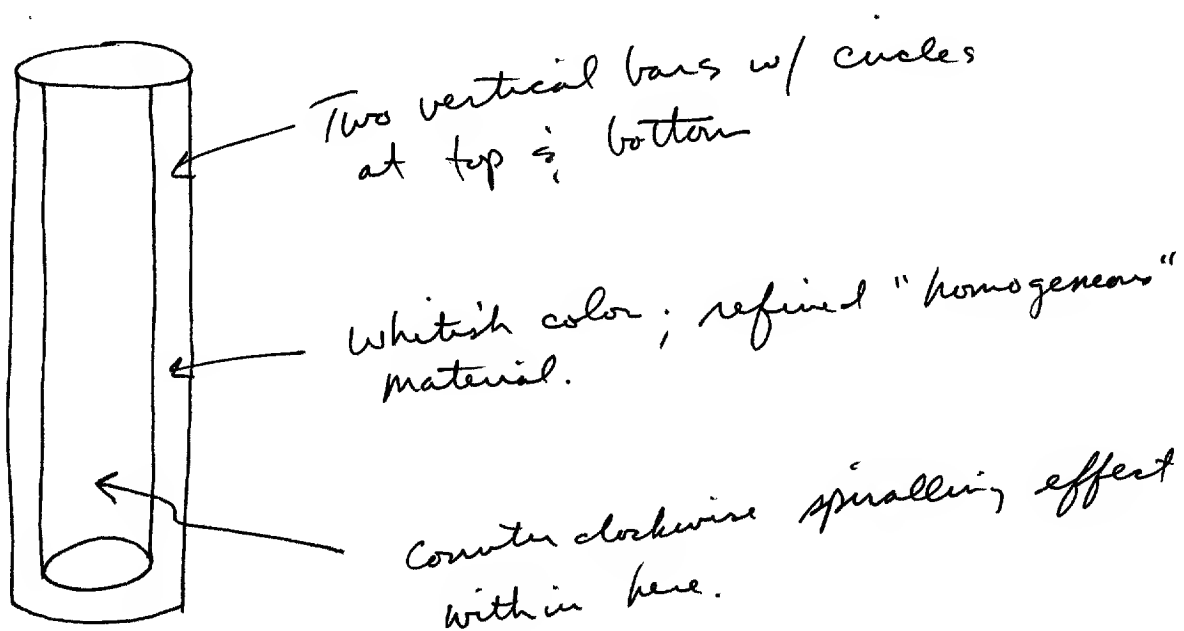 Two vertical bars w/ circles
at top & bottom
Whitish color; refined "homogeneous"
material.
Counter clockwise spiralling effect
within here.